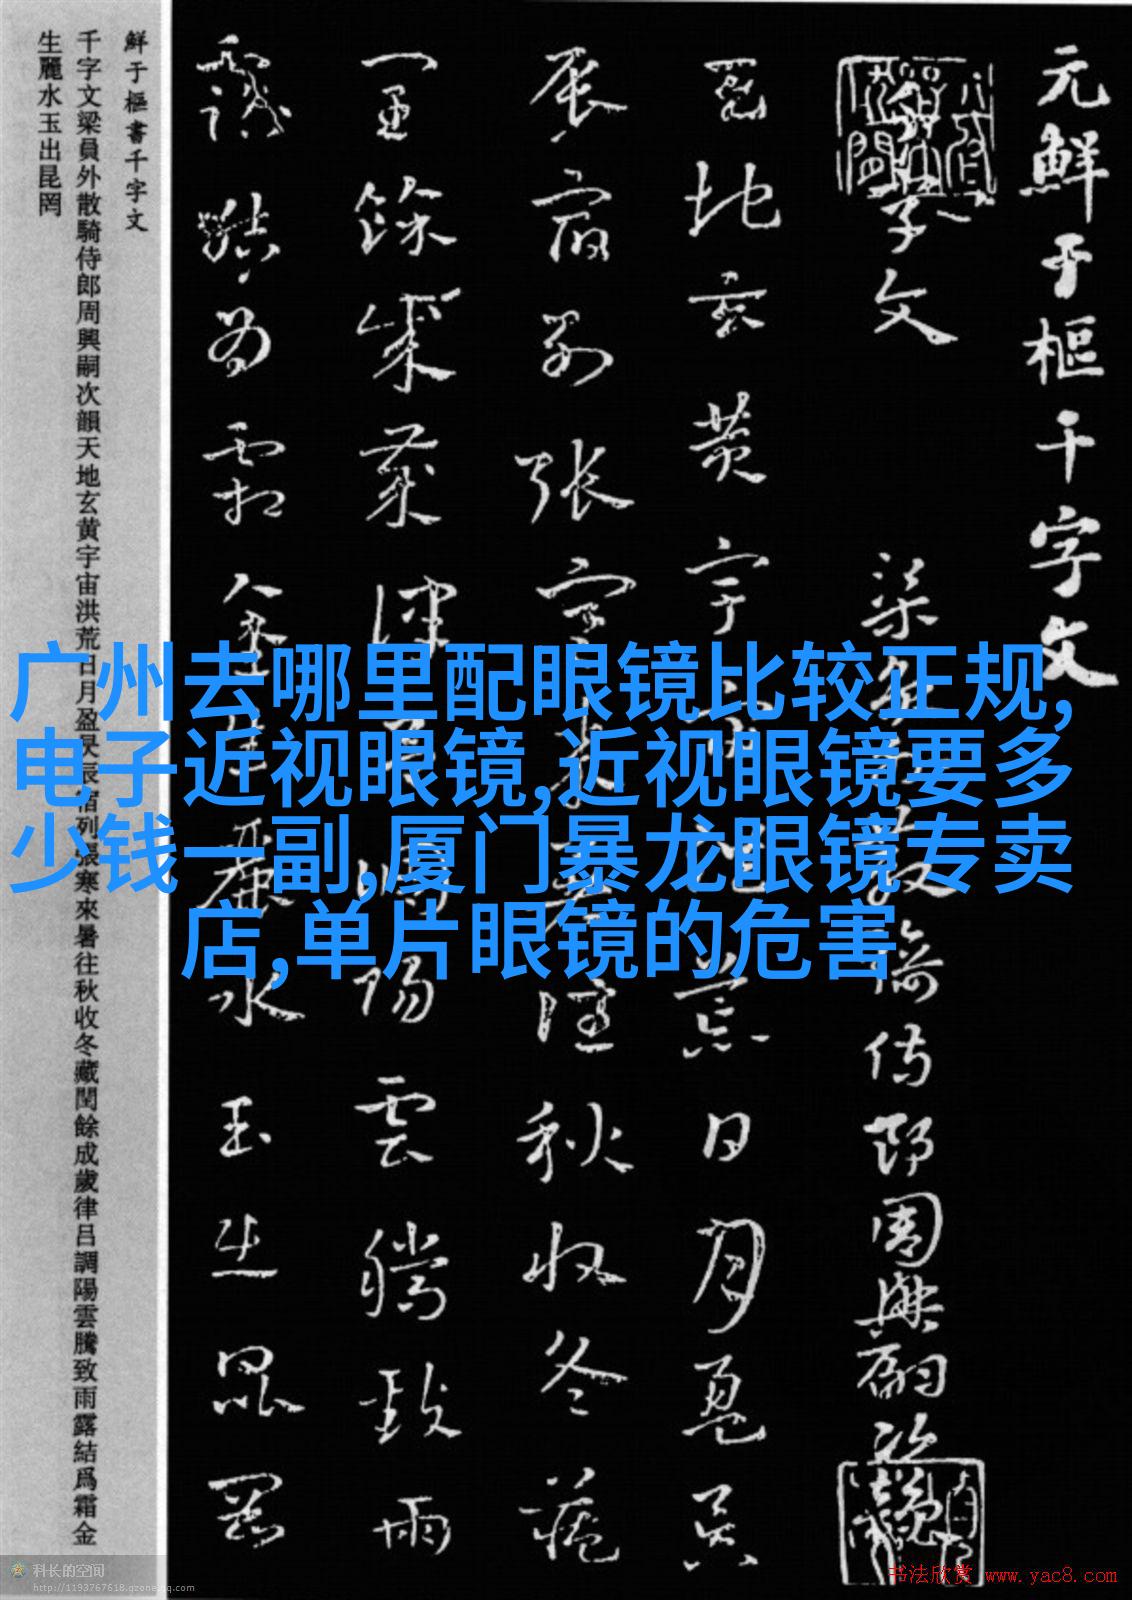 广州去哪里配眼镜比较正规,
电子近视眼镜,近视眼镜要多
少钱一副,厦门暴龙眼镜专卖
店,单片眼镜的危害
元鮮于樞千字文
千字文 梁員外散騎侍郎周興嗣次韻
天地玄黄宇宙洪荒日月盈昃
辰宿列張寒來暑往秋收冬藏
閏餘成歲律吕調陽雲騰致雨
露結為霜金生麗水玉出崑岡
鮮于樞書千字文
千字文梁員外散騎侍郎周興嗣次韻天地玄黄宇宙洪荒日月盈昃辰宿列張寒來暑往秋收冬藏閏餘成歲律吕調陽雲騰致雨露結爲霜金
生麗水玉出昆罔
科长的空间
http://1193767618.qzone.qq.com
书法欣赏 www.yac8.com